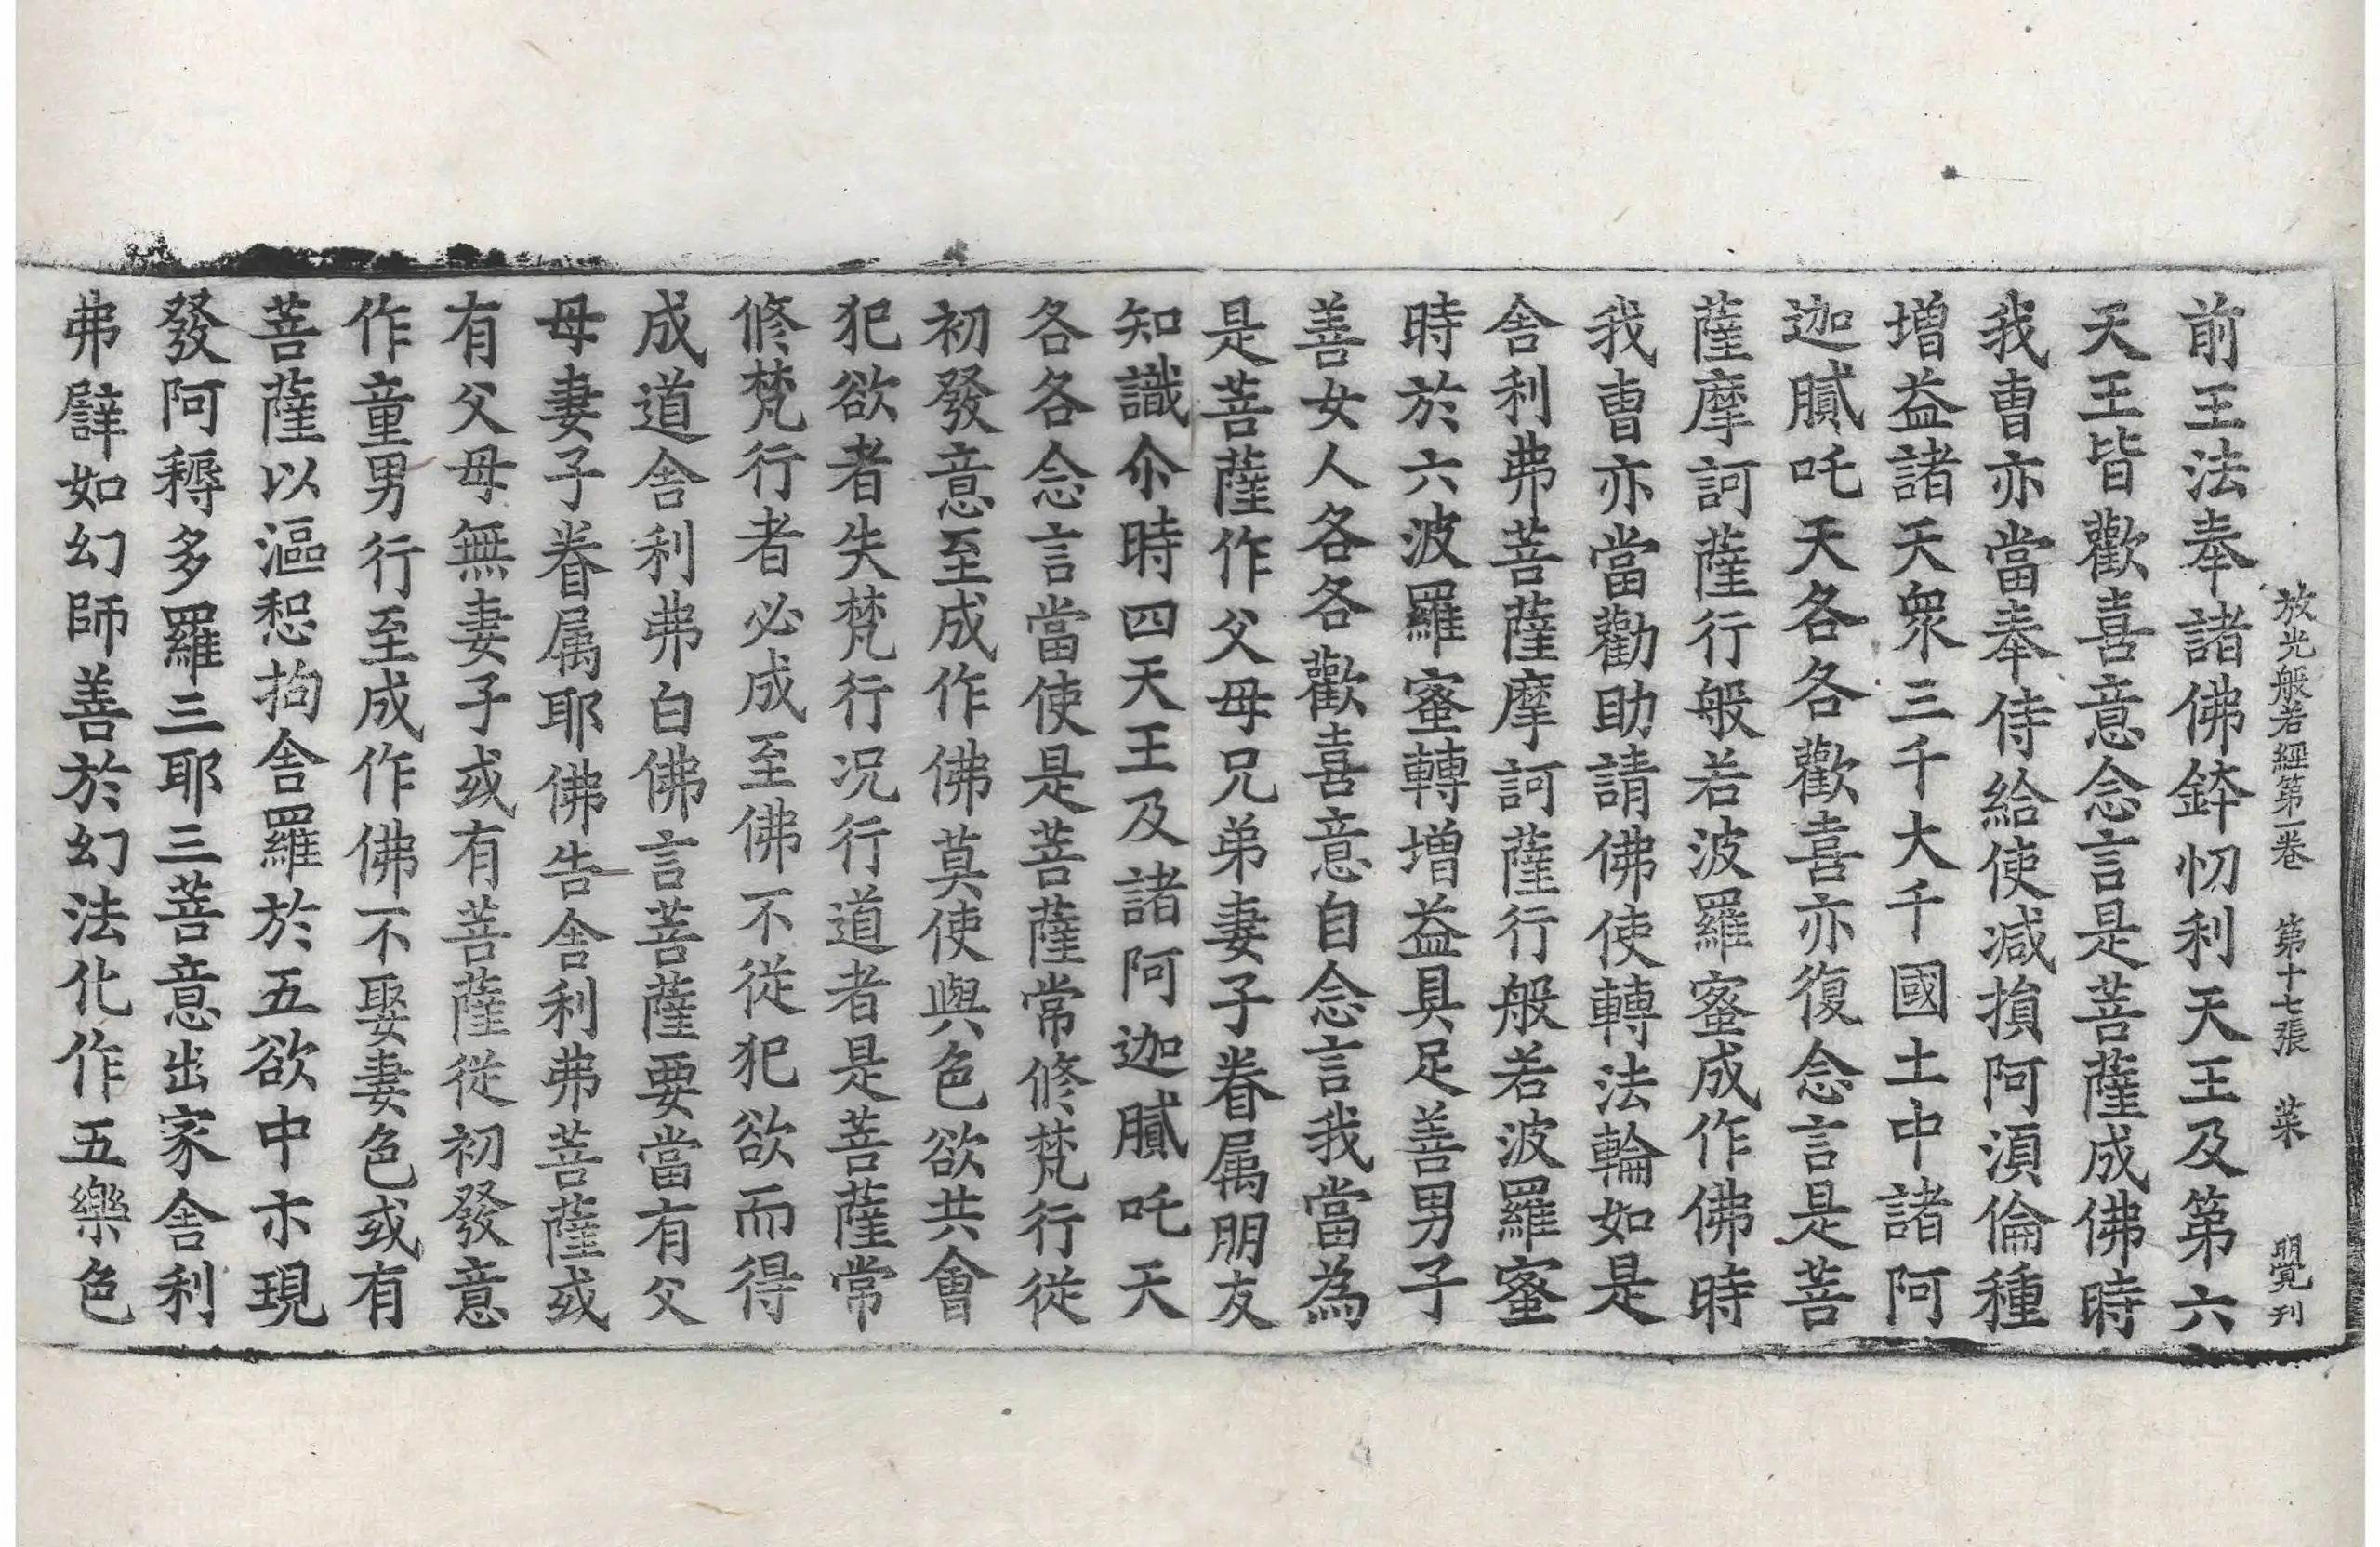 放光般若經第一卷 第十七張 菜 朙覺刊
前王法奉諸佛鉢忉利天王及第六
天王皆歡喜意念言是菩薩成佛時
我曹亦當奉侍給使減損阿湏倫種
增益諸天衆三千大千國土中諸阿
迦膩吒天各各歡喜亦復念言是菩
薩摩訶薩行般若波羅蜜成作佛時
我曹亦當勸助請佛使轉法輪如是
舎利弗菩薩摩訶薩行般若波羅蜜
時於六波羅蜜轉增益具足善男子
善女人各各歡喜意自念言我當為
是菩薩作父母兄弟妻子眷属朋友
知識尒時四天王及諸阿迦膩吒天
各各念言當使是菩薩常修梵行從
初發意至成作佛莫使與色欲共會
犯欲者失梵行况行道者是菩薩常
修梵行者必成至佛不從犯欲而得
成道舎利弗白佛言菩薩要當有父
母妻子眷属耶佛告舎利弗菩薩或
有父母無妻子或有菩薩從初發意
作童男行至成作佛不娶妻色或有
菩薩以漚惒拘舎羅於五欲中亦現
發阿耨多羅三耶三菩意出家舎利
弗譬如幻師善於幻法化作五樂色